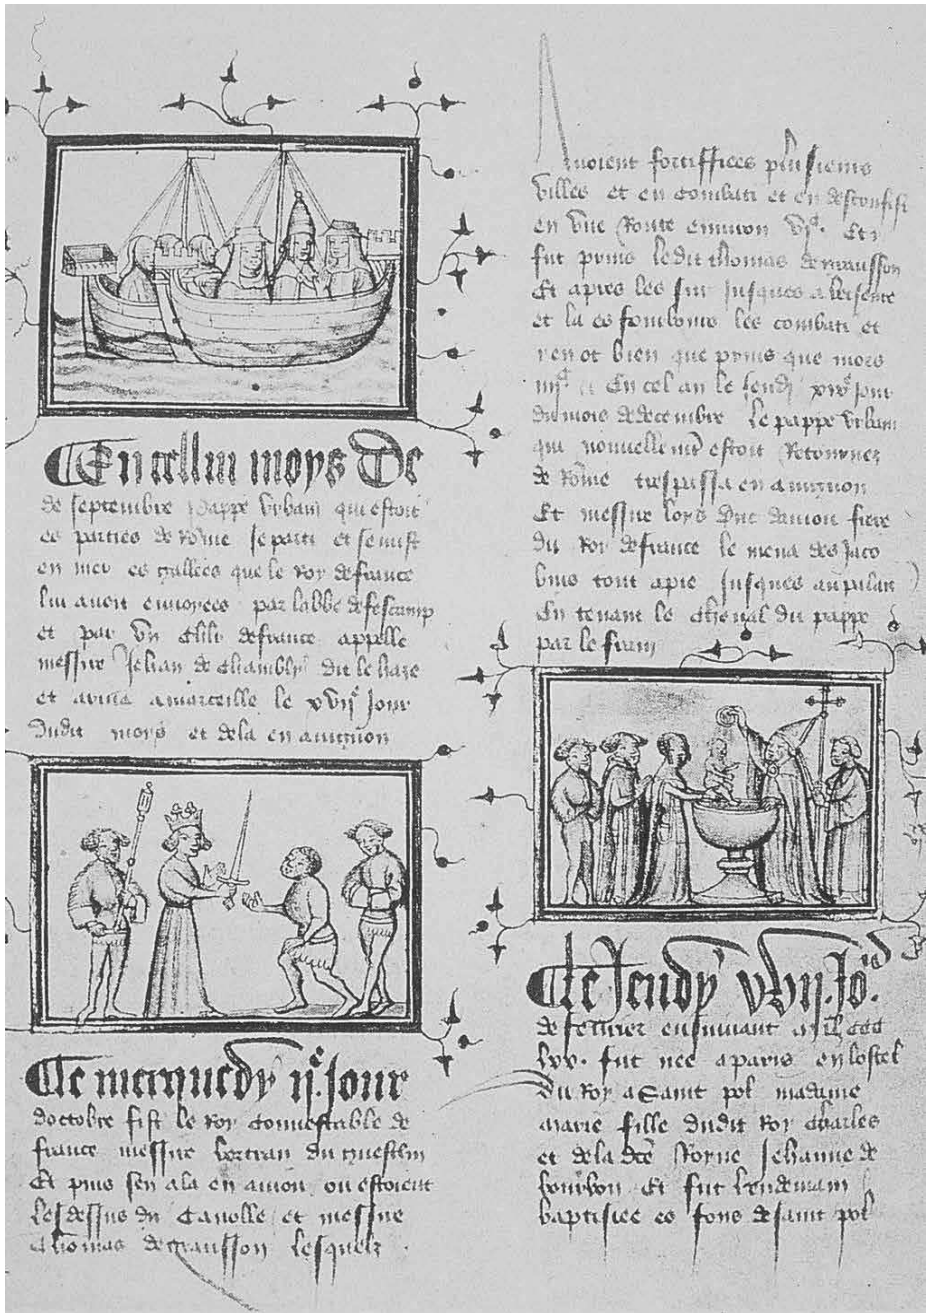 En cellui moys De
de septembre pappe urbain qui estoit
es parties de Romme se parti et se mist
en mer es gallees que le Roy de france
lui avoit envoyees par labbe de fescamp
et par un chlr de france appelle
messire Jehan de Chambly dit le haze
et ariva a marceille le xvijᵉ Jour
dudit moys et de la en avignon
Le merquedy ijᵉ. Jour
doctobre fist le Roy connestable de
france messire bertran du guesclin
Et puis sen ala en aniou ou estoient
Les dessus du Canolle et messire
Thomas de gransson lesquelz
Avoient fortiffiees plusieurs
villes et en combati et en desconfist
en une Route environ vjᶜ. Et
fut prins ledit thomas de gransson
Et apres les sui Jusques a
et la es les combati et
en ot bien que prins que mors
iijᶜ En cel an le Jeudi xixᵉ Jour
du mois de decembre Le pappe urbain
qui nouvellemt estoit Retournez
de Romme trespassa en avignon
Et messire loys duc danjou frere
du Roy de france le mena des Jaco
bins tout a pie Jusques au palais
En tenant le cheval du pappe
par le frain
Le Jeudy xxvij. Jo.
de fevrier ensuivant mil ccc
lxx. fut nee a paris en lostel
du Roy a Saint pol madame
marie fille dudit Roy Charles
et de la dce Royne Jehanne de
bourbon Et fut lendemain
baptisiee es fons de saint pol